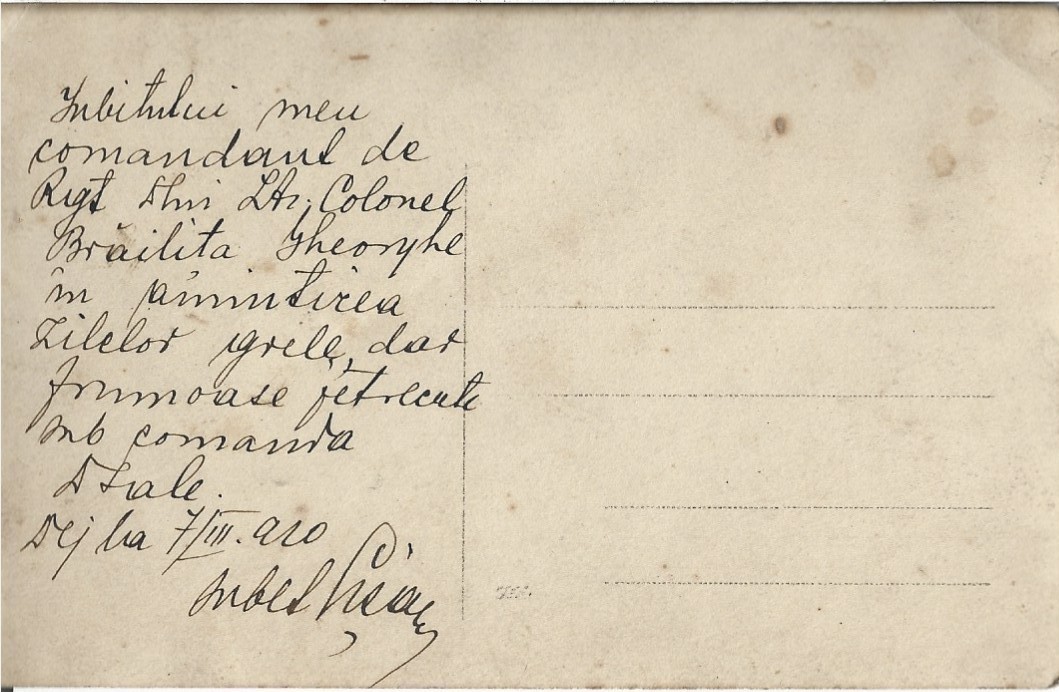 Iubitului meu
comandant de
Rgt Dlui Lt. Colonel
Brăilita Gheorghe
în amintirea
Zilelor grele, dar
frumoase petrecute
sub comanda
D Sale.
Dej la 7/III. 920